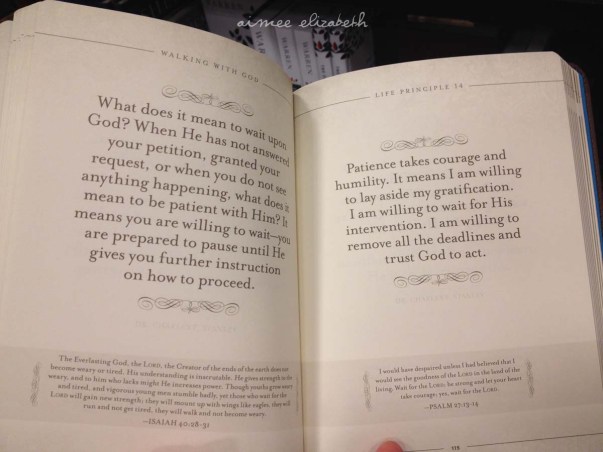 aimee elizabeth
WALKING WITH GOD
What does it mean to wait upon
God? When He has not answered
your petition, granted your
request, or when you do not see
anything happening, what does it
mean to be patient with Him? It
means you are willing to wait—you
are prepared to pause until He
gives you further instruction
on how to proceed.
The Everlasting God, the LORD, the Creator of the ends of the earth does not
become weary or tired. His understanding is inscrutable. He gives strength to the
weary, and to him who lacks might He increases power. Though youths grow weary
and tired, and vigorous young men stumble badly, yet those who wait for the
LORD will gain new strength; they will mount up with wings like eagles, they will
run and not get tired, they will walk and not become weary.
—ISAIAH 40:28–31
LIFE PRINCIPLE 14
Patience takes courage and
humility. It means I am willing
to lay aside my gratification.
I am willing to wait for His
intervention. I am willing to
remove all the deadlines and
trust God to act.
I would have despaired unless I had believed that I
would see the goodness of the LORD in the land of the
living. Wait for the LORD; be strong and let your heart
take courage; yes, wait for the LORD.
—PSALM 27:13–14
115